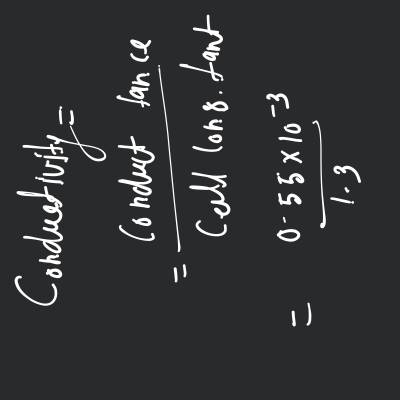 Conductivity =
= Conduct tance
Cell Cons. tant
= 0.55 x 10⁻³
1.3